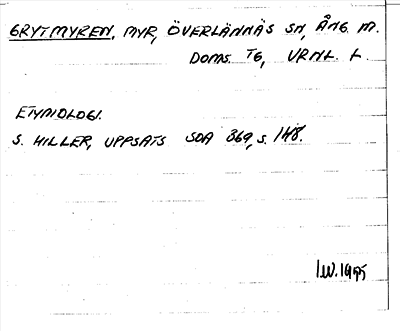 GRYTMYREN, MYR, ÖVERLÄNNÄS SN, ÅNG. M.
DOMS. TG, VRNL. L.
ETYMOLOGI.
S. HILLER, UPPSATS SOA 369, S. 148.
I.W. 1995